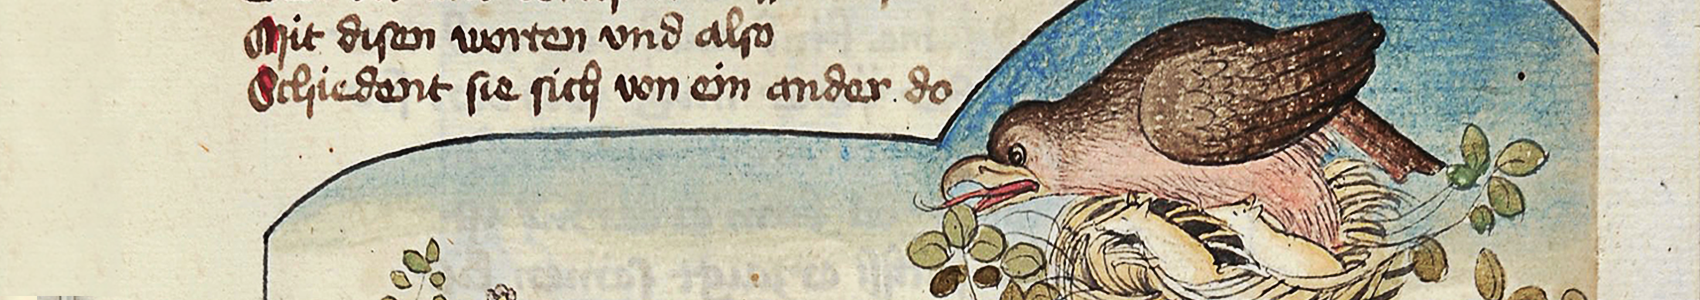 Mit disen worten vnd also
Schiedent sie sich von ein ander do